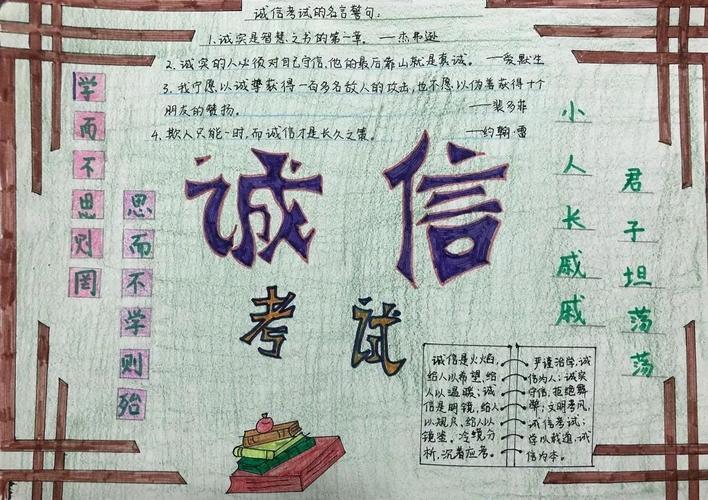 诚信考试的名言警句:
1.诚实是智慧之书的第一章。—杰弗逊
2.诚实的人必须对自己守信,他的最后靠山就是真诚。—爱默生
3.我宁愿以诚挚获得一百多名敌人的攻击,也不愿以伪善获得十个
朋友的赞扬。—裴多菲
4.欺人只能一时,而诚信才是长久之策。—约翰·雷
学而不思则罔
思而不学则殆
诚信
考试
君子坦荡荡
小人长戚戚
诚信是火焰
给人以希望,给
人以温暖;诚
信是明镜,给人
以规尺,给人以
镜鉴。冷镜分
析,沉着应考。
严谨治学,诚
信为人;诚实
守信,拒绝舞
弊;文明考风,
诚信考试;
学以载道,诚
信为本。